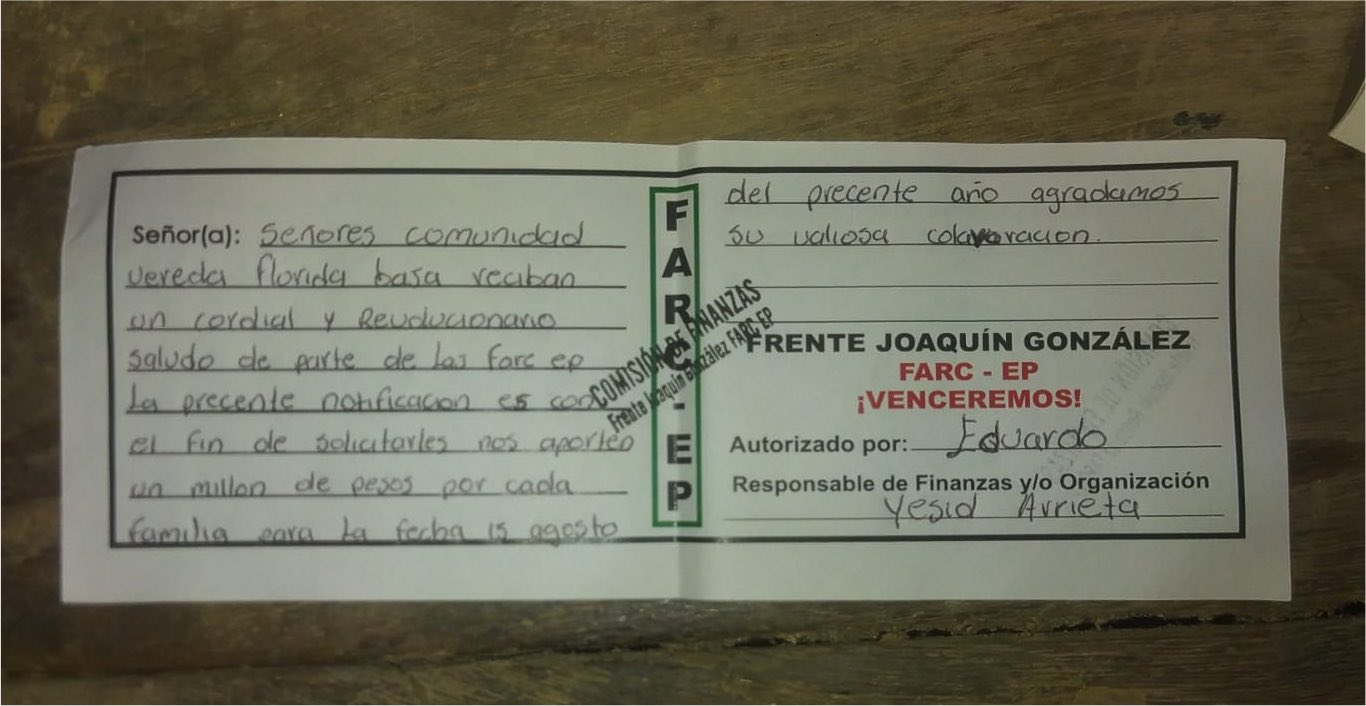 Señor(a): Señores comunidad
vereda florida baja reciban
un cordial y Revolucionario
saludo de parte de las farc ep
la precente notificacion es con
el fin de solicitarles nos aporten
un millon de pesos por cada
familia para la fecha 15 agosto
FARC-EP
COMISIÓN DE FINANZAS
Frente Joaquín González FARC EP
del precente año agradamos
su valiosa colavoracion.
FRENTE JOAQUÍN GONZÁLEZ
FARC - EP
¡VENCEREMOS!
Autorizado por: Eduardo
Responsable de Finanzas y/o Organización
Yesid Arrieta